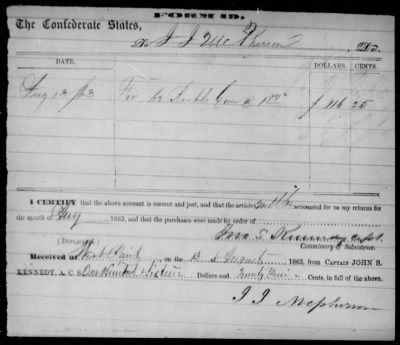 FORM 12.
The Confederate States,
To J J McPherson Dr.
DATE. DOLLARS. CENTS.
Aug 13 63 For 62 Bushls Corn @ 18 $ 116 25
I CERTIFY that the above account is correct and just, and that the articles will be accounted for on my returns for
the month of Aug 1863, and that the purchases were made by order of
Jno. S. Kennedy
Commissary of Subsistence.
(DUPLICATE)
Received at West Point on the 13 of August 1863, from CAPTAIN JOHN S.
KENNEDY, A. C. S. One Hundred & Sixteen Dollars and Twenty Five Cents, in full of the above.
J J McPherson